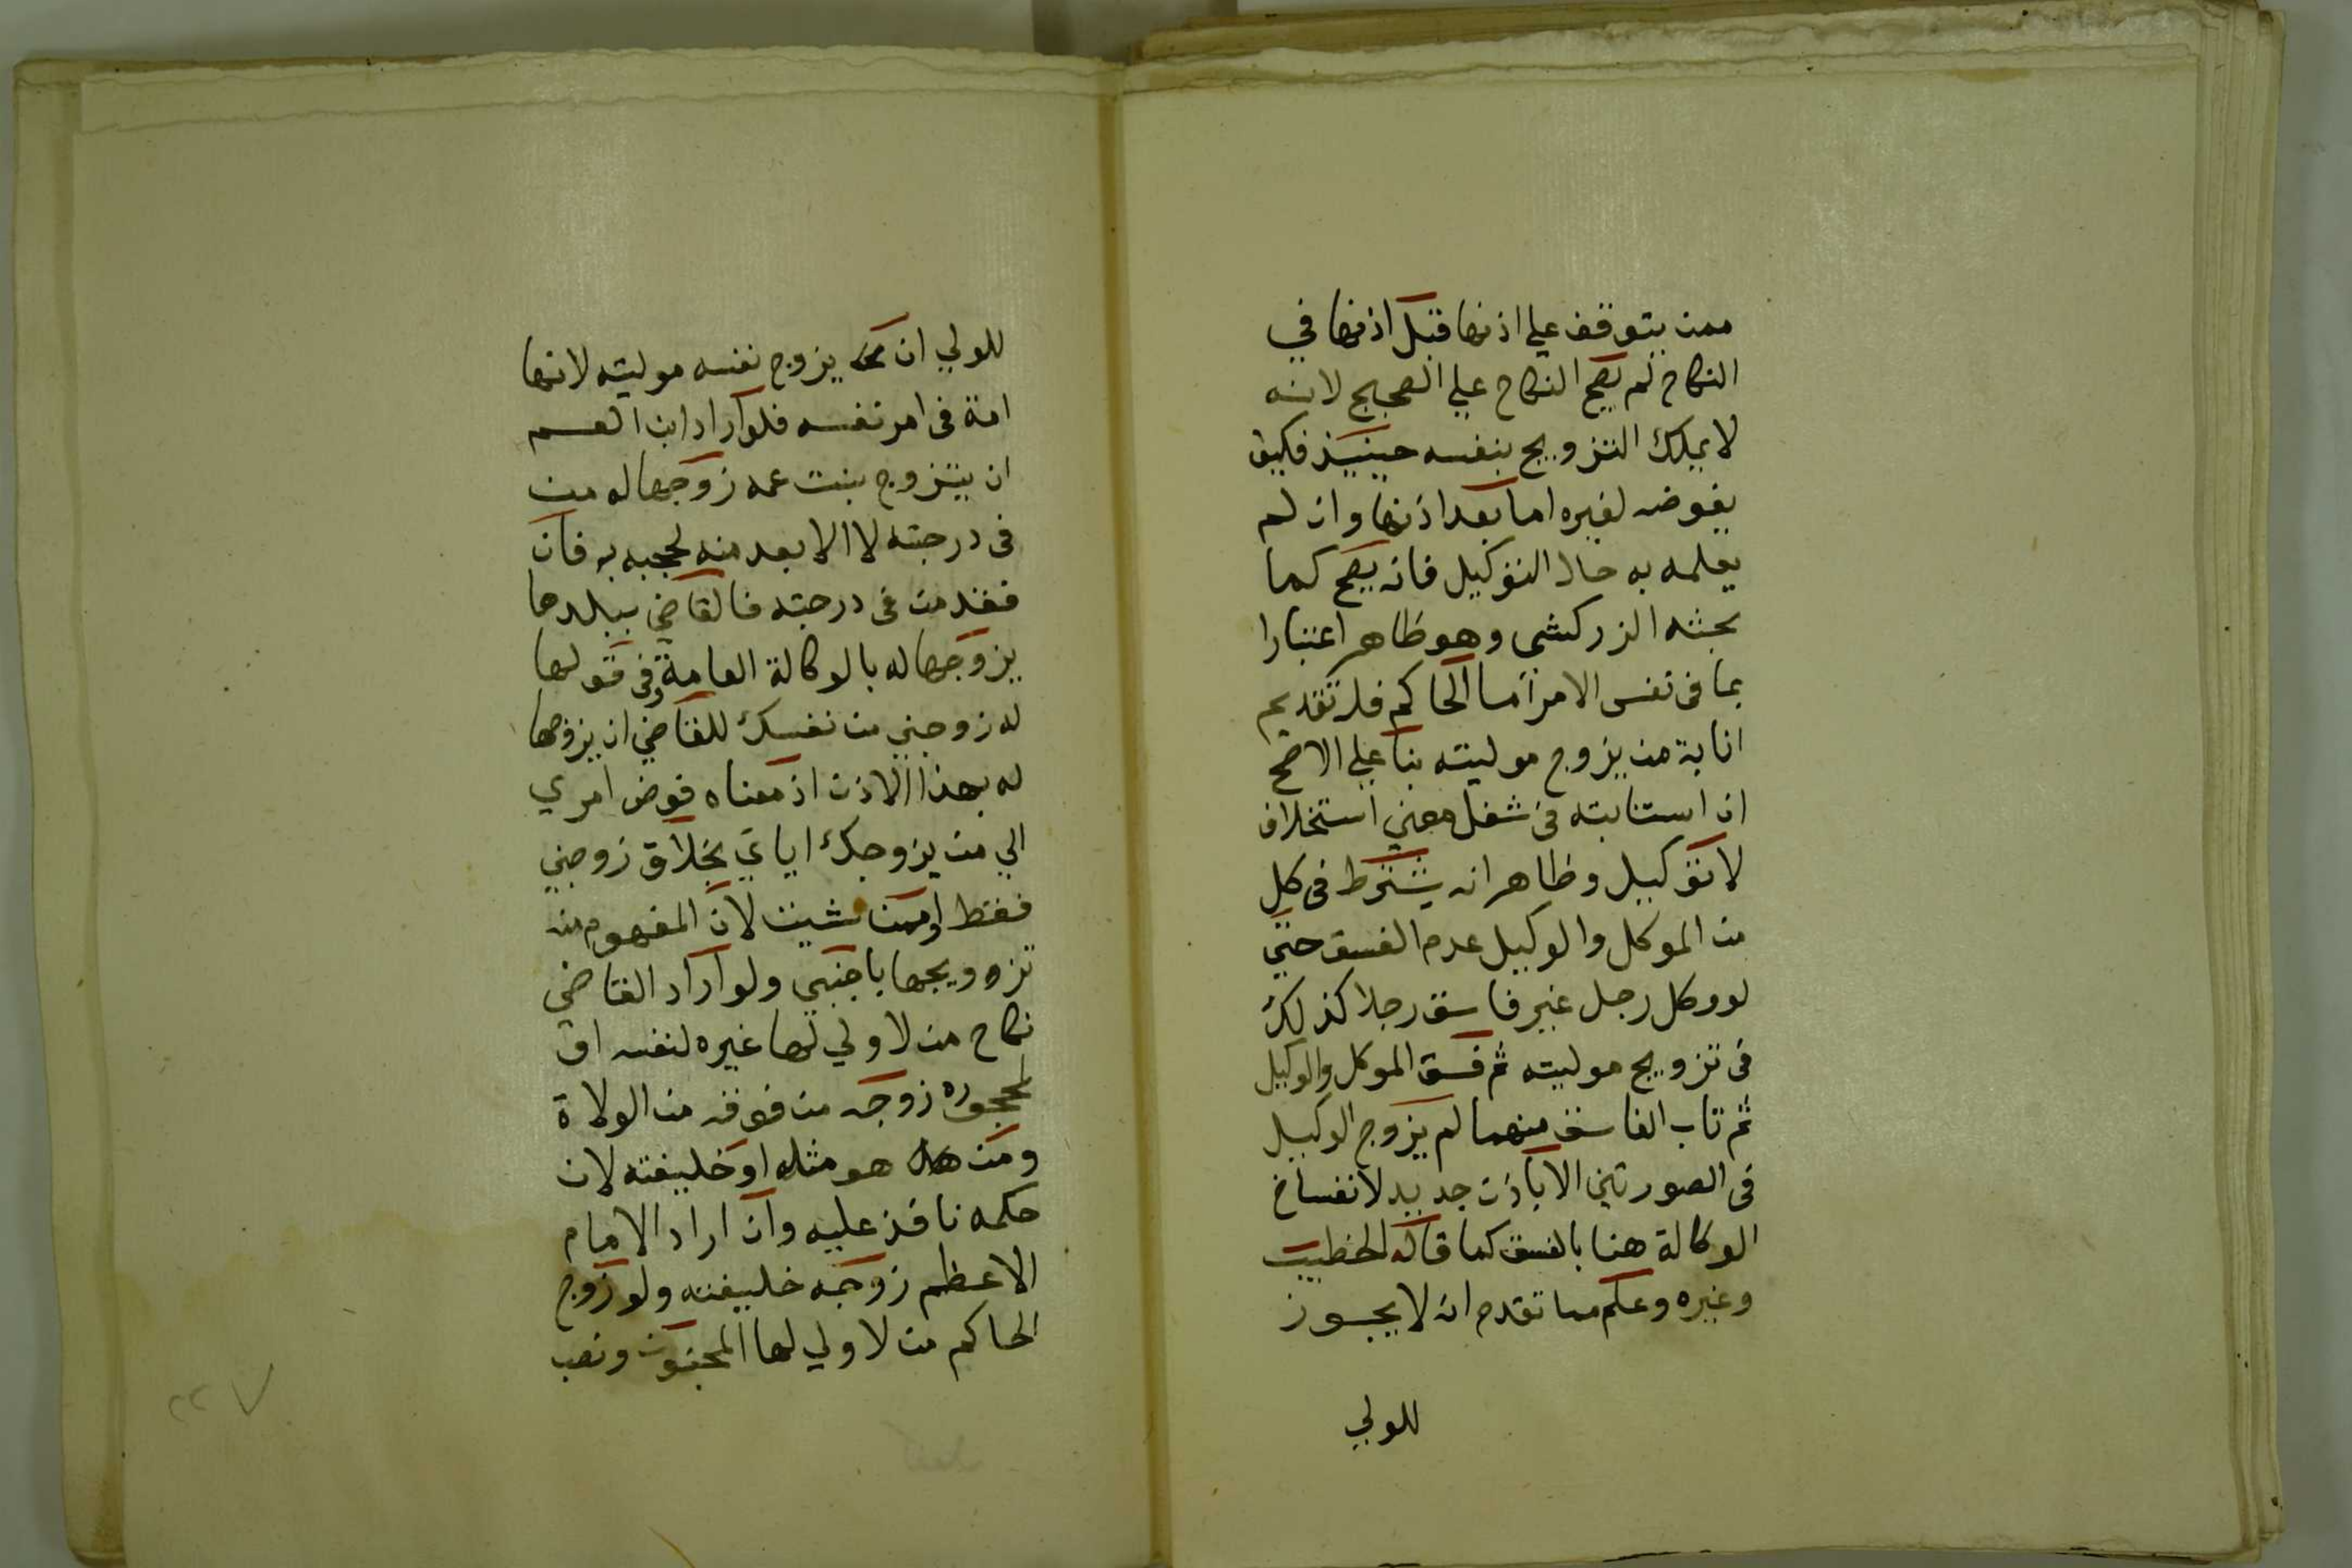 ممن يتوقف علي اذنها قبل اذنها في
النكاح لم يصح النكاح علي الصحيح لانه
لا يملك التزويج بنفسه حينيذ فكيف
يفوضه لغيره اما بعد اذنها وان لم
يعلمه به حال التوكيل فانه يصح كما
بحثه الزركشي وهو ظاهر اعتبارا
بما في نفس الامر اما الحاكم فله تقديم
انابة من يزوج موليته بنا علي الاصح
ان استنابته في شغل معين استخلاف
لا توكيل وظاهر انه يشترط في كل
من الموكل والوكيل عدم الفسق حتي
لو وكل رجل غير فاسق رجلا كذلك
في تزويج موليته ثم فسق الموكل والوكيل
ثم تاب الفاسق منهما لم يزوج الوكيل
في الصورتين الا باذن جديد لانفساخ
الوكالة هنا بالفسق كما قاله الخطيب
وغيره وعلم مما تقدم انه لا يجوز
للولي
للولي ان يزوج نفسه موليته لانها
امة في امر نفسه فلو اراد ابن العم
ان يتزوج بنت عمه زوجها له من
في درجته لا الابعد منه لحجبه به فان
فقد من في درجته فالقاضي ببلدها
يزوجها له بالوكالة العامة وفي قولها
له زوجني من نفسك للقاضي ان يزوجها
له بهذا الاذن اذ معناه فوض امري
الي من يزوجك اياي بخلاف زوجني
فقط او ممن شيت لان المفهوم منه
تزوويجها باجنبي ولو اراد القاضي
نكاح من لا ولي لها غيره لنفسه او
لمحجوره زوجه من فوقه من الولاة
ومن هو مثله او خليفته لان
حكمه نافذ عليه وان اراد الامام
الاعظم زوجه خليفته ولو زوج
الحاكم من لا ولي لها المجنون ونصب
٢٢٧